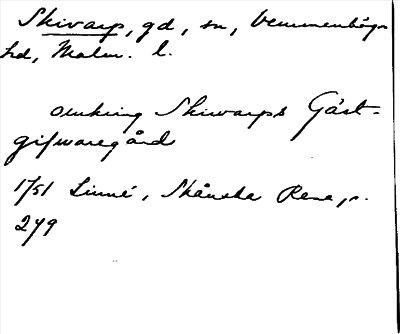 Skivarp, gd, sn, Vemmenhögs
hd, Malm. l.
omkring Skiwarps Gäst-
gifwaregård
1751 Linné, Skånska Resa, s.
249